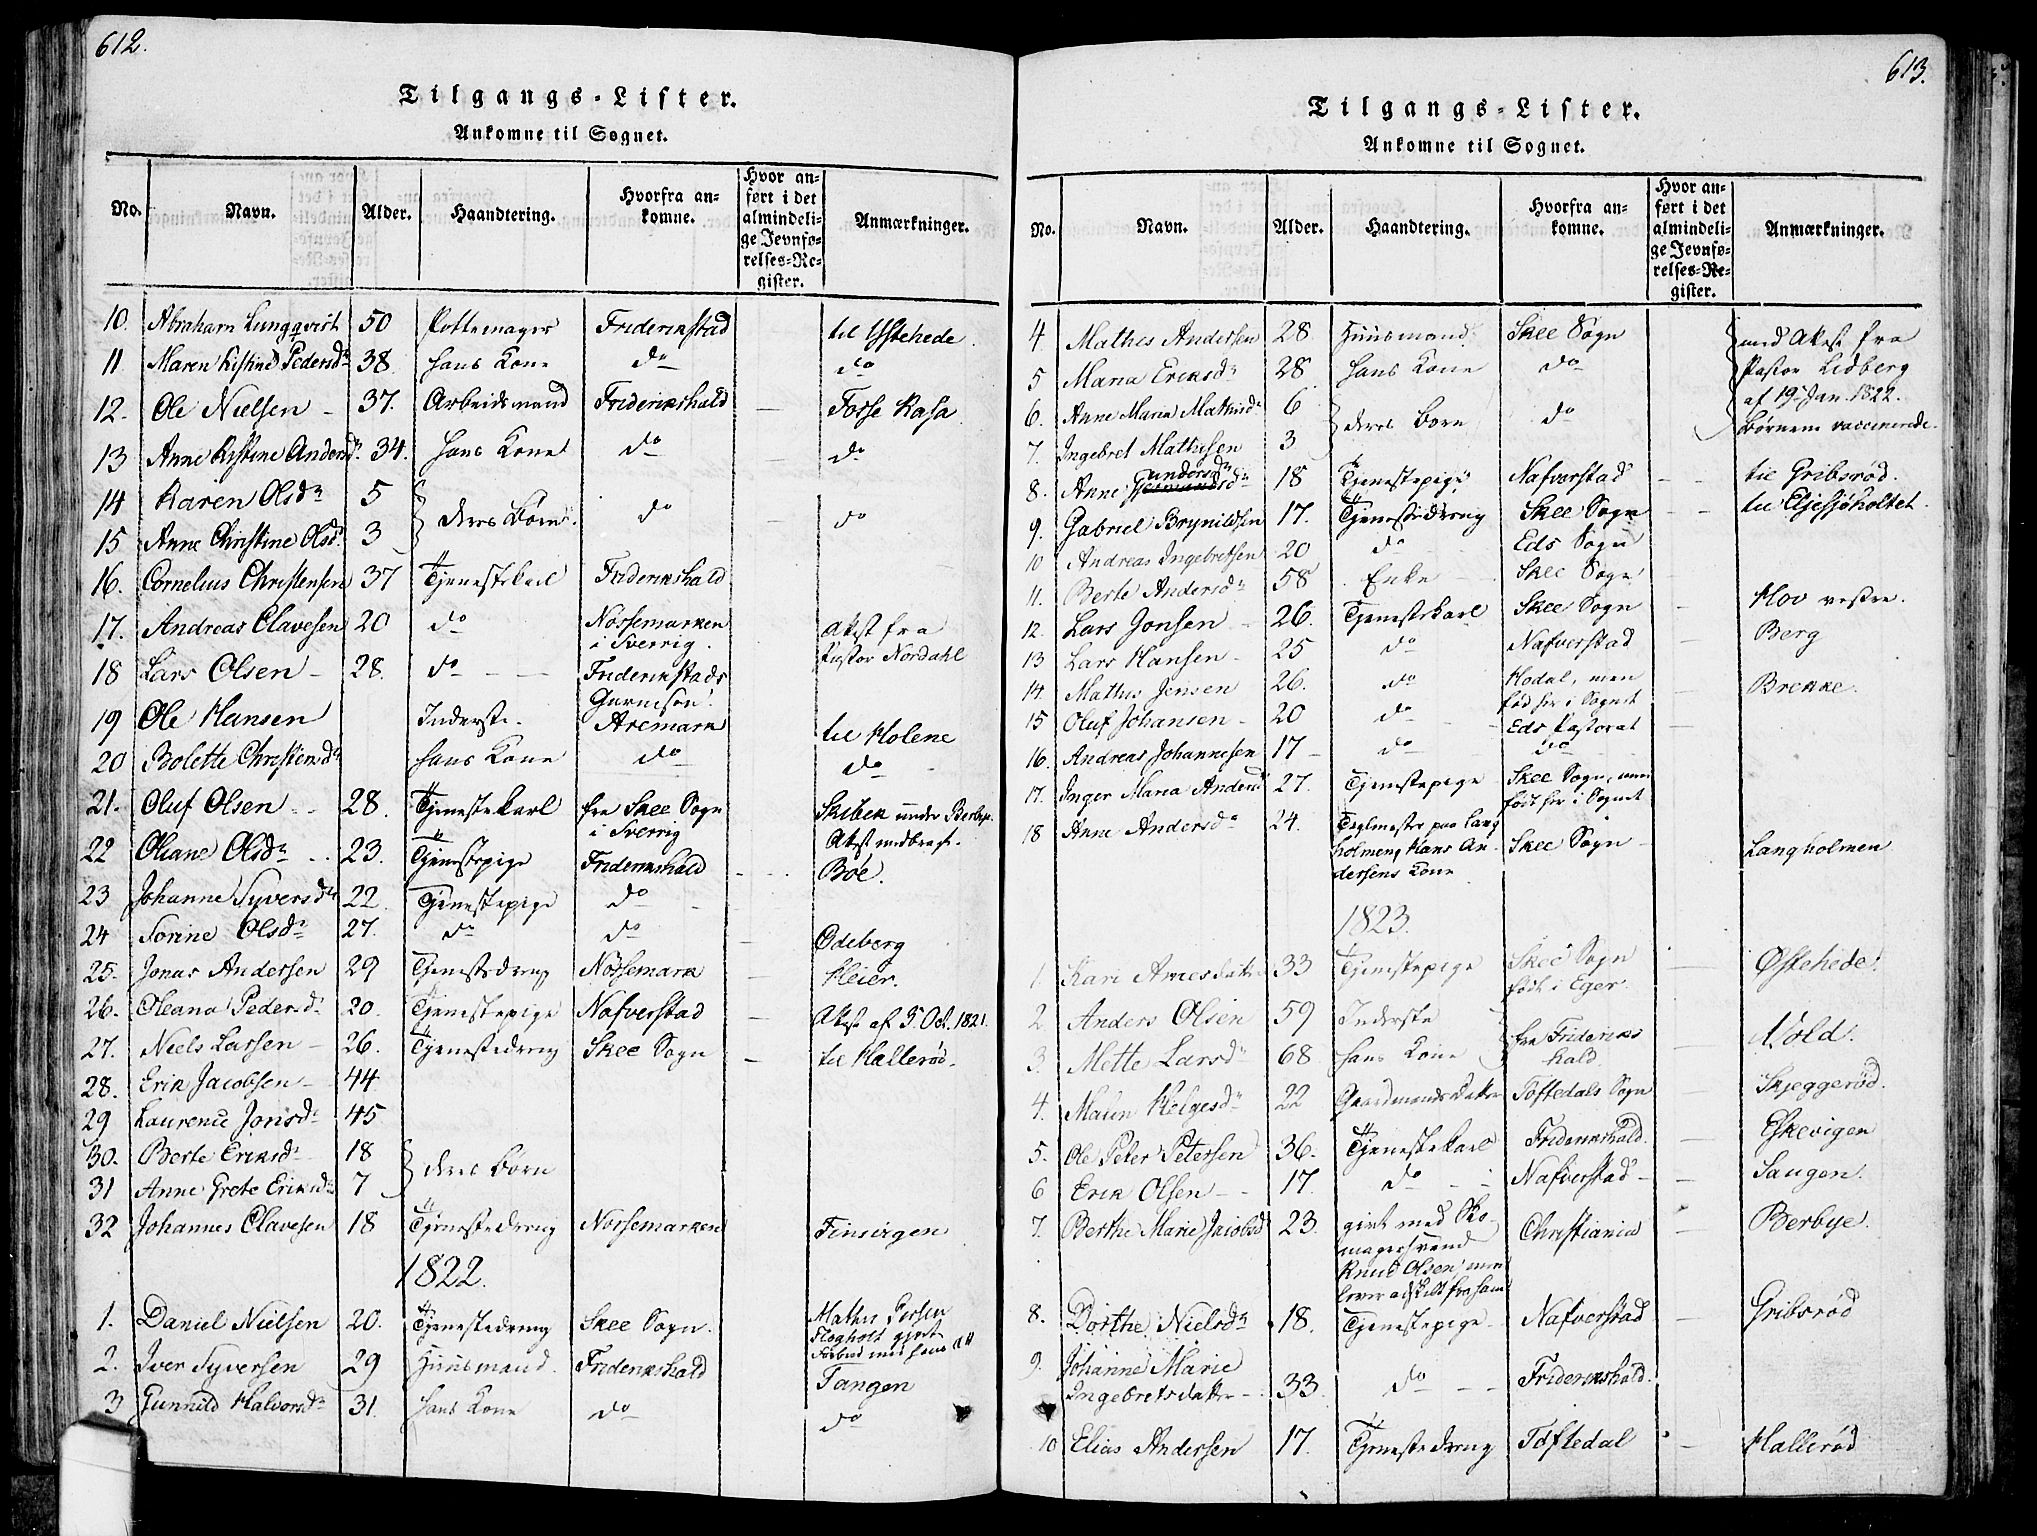 612.
Tilgangs-Lister.
Ankomne til Sognet.
No. Navn. Alder. Haandtering. Hvorfra ankomne. Hvor anført i det almindelige Jevnførelses-Register. Anmærkninger.
10. Abraham Lungqvist 50 Pottemager Friderikstad til Ystehede.
11 Maren Kistine Pedersdr 38. hans Kone do do
12. Ole Nielsen - 37. Arbeidsmand Friderikshald Fosse Kasa
13 Anne Kistine Andersdr. 34. hans Kone do do
14 Karen Olsdr 5 } deres Børn. do do
15 Anne Christine Olsdr. 3
16. Cornelius Christensen 37 Tjenestekarl Friderikshald
17. Andreas Olavesen 20 do Nössemarken i Sverrig. Attest fra Pastor Nordahl
18 Lars Olsen - 28. do Friderikstads Garnison.
19 Ole Hansen Inderste. Aremark til Holene
20 Bolette Christensdr hans Kone do do
21. Oluf Olsen 28. Tjenestekarl fra Skee Sogn i Sverrig Skibek under Berbye. Attest medbragt.
22 Oliane Olsdr 23. Tjenestepige Friderikshald Böe.
23 Johanne Syversdr 22. Tjenestepige do
24 Sorine Olsdr 27. do do Odeberg
25. Jonas Andersen 29 Tjenestedreng Nössemark Heier.
26. Oleana Pedersdr 20. Tjenestepige Nafverstad Attest af 5 Oct. 1821.
27. Niels Larsen - 26. Tjenestedreng Skee Sogn til Hallerød.
28. Erik Jacobsen 44
29 Laurence Jonsdr 45.
30. Berte Eriksdr 18 } deres Børn
31 Anne Grete Eriksdr 7
32 Johannes Olavesen 18 Tjenestedreng Nössemarken
1822.
1. Daniel Nielsen 20. Tjenestedreng Skee Sogn.
2. Iver Syversen 29 Huusmand. Friderikshald Tangen
3 Gunnild Halvorsdr 31. hans Kone do do
613.
Tilgangs-Lister.
Ankomne til Sognet.
No. Navn. Alder. Haandtering. Hvorfra ankomne. Hvor anført i det almindelige Jevnførelses-Register. Anmærkninger.
4 Mathes Andersen 28 Huusmand. Skee Sogn med Attest fra
5 Maria Eriksdr 28 hans Kone do Pastor Lidberg
6. Anne Maria 6 } deres Børn do af 19 Jan. 1822.
7. Ingebret Mathisen 3 Børnene vaccinerede.
8. Anne Gundersdr 18 Tjenestepige Nafverstad til Gribsrød.
9. Gabriel Brynildsen 17. Tjenestedreng Skee Sogn til Elgesjøholtet.
10 Andreas Ingebretsen 20 do Eds Sogn
11. Berte Andersdr 58 Enke Skee Sogn
12. Lars Jonsen 26. Tjenestekarl Skee Sogn Hov vestre.
13 Lars Hansen - 25 do Nafverstad Berg
14. Mathis Jensen 26. do Hodal, men fød her i Sognet Brekke.
15 Oluf Johansen - 20 do Eds Pastorat
16. Andreas Johannesen 17 - do do
17. Inger Maria Andersdr 27. Tjenestepige Skee Sogn, men født her i Sognet
18 Anne Andersdr 24. Teglmester paa Lang
holmen, Hans An- Skee Sogn - Langholmen
dersens Kone
1823.
1. Kari Arnesdatter 33 Tjenestepige Skee Sogn født i Eger. Østehede.
2 Anders Olsen 59 Inderste } fra Friderikshald Nold.
3. Mette Larsdr 68 hans Kone
4. Maren Helgesdr 22 Gaardmandsdatter Töftedals Sogn Skjeggerød.
5. Ole Peter Petersen 36. Tjenestekarl Friderikshald. Eskevigen
6 Erik Olsen - 17. do Nafverstad - Saugen.
7. Berthe Marie Jacobsd 23. givt med Sko- Christiania Berbye.
magersvend
Knud Olsen, men
lever adskilt fra ham
8. Dorthe Nielsdr 18. Tjenestepige Nafverstad Gribsrød
9. Johanne Marie
Ingebretsdatter - 33. do Friderikshald.
10 Elias Andersen 17. Tjenestedreng Töftedal Hallerød